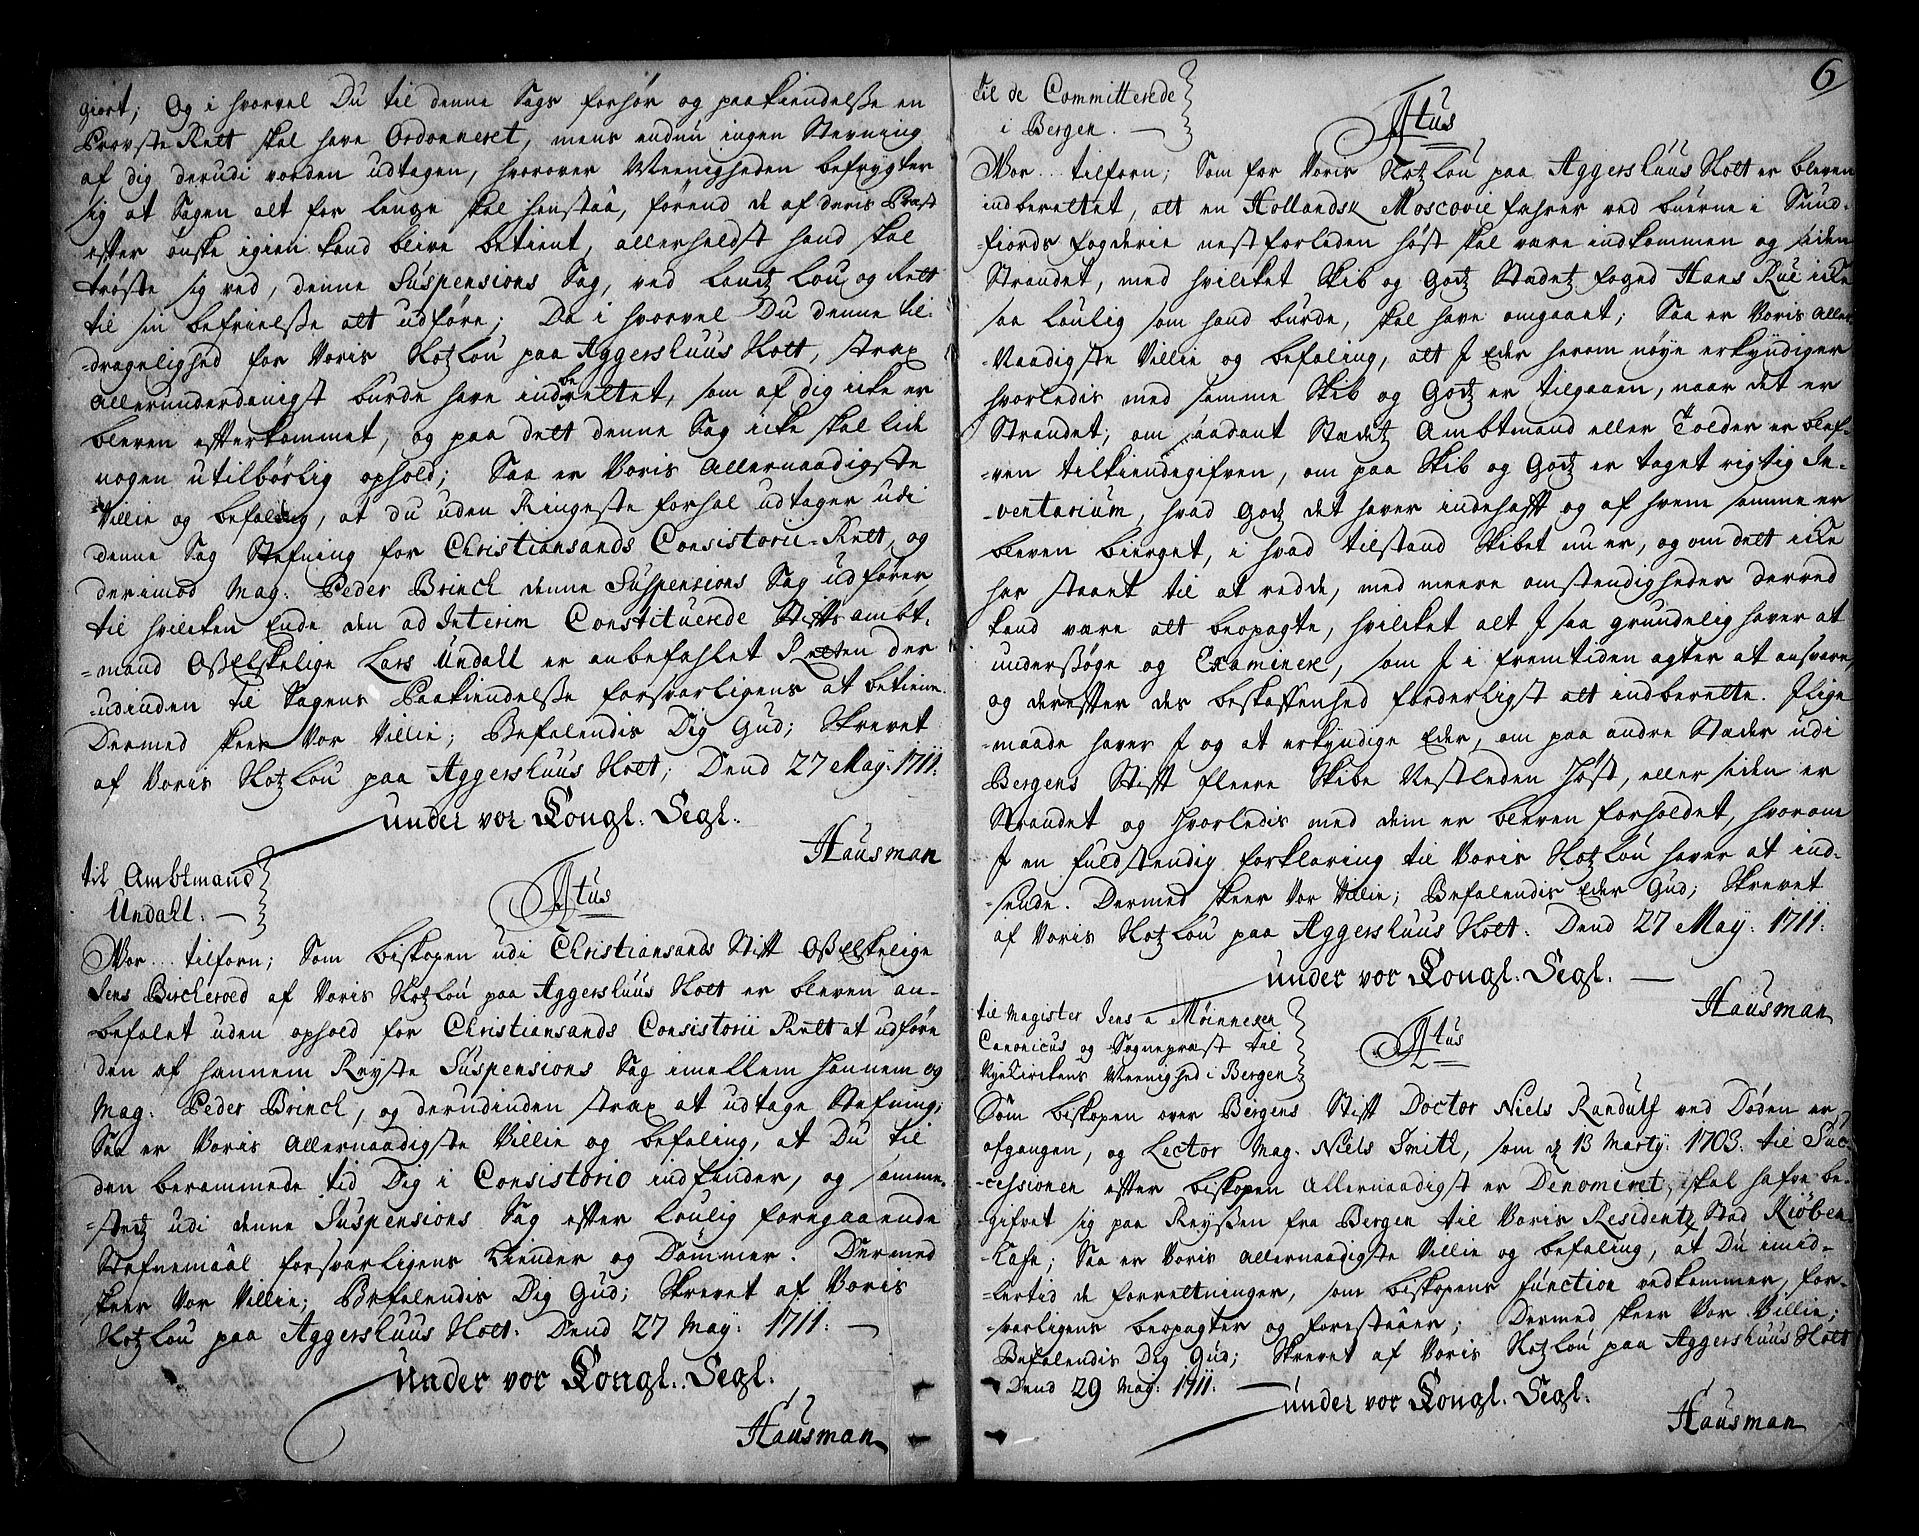 giort; Og i hvorvel Du til denne Sags forhør og paakiendelsse en
Provste Rett skal have Ordonneret, mens endnu ingen Stevning
af dig derudi vorden udtagen, hvorover Meenigheden befrygter
sig at Sagen alt for lenge skal henstaa, førend de af deris Præst
efter ønske igien kand blive betient, allerhelst hand skal
trøste sig ved, denne Suspensions Sag, ved Landtz Lou og Rett
til sin befrielsse alt udføre; Da i hvorvel Du denne til-
-dragelighed for Voris Slotzlou paa Aggershuus Slott, strax
allerunderdanigst burde have indberettet, som af dig icke er
bleven efterkommet, og paa dett denne Sag icke skal lide
nogen utilbørlig ophold; Saa er Voris Allernaadigste
Villie og befaling, at du uden Ringeste forhal udtager udi
denne Sag Stefning for Christiansands Consistorii-Rett, og
derimod Mag: Peder Brinch denne Suspensions Sag udfører,
til hvilken Ende den ad Interim Constituerede Stiftsambt-
-mand Osselskelige Lars Undall er anbefahlet Retten der
-udinden til Sagens Paakiendelsse forsvarligens at betiene.
Dermed skeer Vor Villie; Befalendis Dig Gud; Skrevet
af Voris Slotzlou paa Aggershuus Slott; Dend 27 May: 1711:
under vor Kongl: Segl:
Hausman
til Ambtmand
Undall. —
Ftus
Vor .. tilforn; Som biskopen udi Christiansands Stift Osselskelige
Jens Bircherod af Voris Slotzlou paa Aggershuus Slott er bleven an-
befalet uden ophold for Christiansands Consistorii Rett at udføre
den af hannem Reyste Suspensions Sag imellem hannem og
Mag: Peder Brinch, og derudinden strax at udtage Stefning;
Saa er Voris Allernaadigste Villie og befaling, at Du til
den berammede tid Dig i Consistorio indfinder, og samme-
-stetz udi denne Suspensions Sag efter loulig foregaaende
Stefnemaal forsvarligens Kiender og Dømmer. Dermed
skeer Vor Villie; Befalendis Dig Gud; Skrevet af Voris
Slotzlou paa Aggershuus Slott. Dend 27 May: 1711: —
Under vor Kongl: Segl:
Hausman
6
til de Committerede
i Bergen. —
Ftus
Vor .. tilforn; Som for Voris Slotzlou paa Aggershuus Slott er bleven
indberettet, att en Hollandsk Moscovie fahrer ved buerne i Sund-
-fiords fogderie nestforleden høst skal være indkommen og siden
Strandet, med hvilcket Skib og Godtz Stædetz foged Hans Rul icke
saa loulig som hand burde, skal have omgaaet; Saa er Voris Aller-
-naadigste Villie og befaling, att I Eder herom nøye erkyndiger
hvorledis med samme Skib og Godtz er tilgaaen, naar det er
Strandet, om saadant Stædetz Ambtmand eller Tolder er blef-
-ven tilkiendegifven, om paa Skib og Godtz er taget rigtig In-
-ventarium, hvad Godtz det haver indehaft og af hvem samme er
bleven bierget, i hvad tilstand Skibet nu er, og om dett icke
har staaet til at redde, med meere omstendigheder derved
kand være att beopagte, hvilcket alt I saa grundelig haver at
undersøge og Examinere, som I i fremtiden agter at ansvare,
og derefter des beskaffenhed forderligst att indberette. Ilige-
-maade haver I og at erkyndige Eder, om paa andre Stæder udi
Bergens Stift fleere Skibe Nestleden Høst, eller siden er
Strandet og hvorledis med dem er bleven forholdet, hvorom
I en fuldstendig forklaring til Voris Slotzlou haver at ind-
-sende. Dermed skeer Vor Villie; Befalendis Eder Gud; Skrevet
af Voris Slotzlou paa Aggershuus Slott. Dend 27 May: 1711:
under vor Kongl: Segl: —
Hausman
til Magister Jens a Møinnexen
Canonicus og Sognepræst til
NyeKirckens Meenighed i Bergen
Ftus
Som biskopen over Bergens Stift Doctor Niels Randulf ved Døden er
afgangen, og Lector Mag. Niels Smith, som d 13 Marty: 1703. til Suc-
-cessionen efter biskopen Allernaadigst er Denomineret, skal hafve be-
-gifvet sig paa Reyssen fra Bergen til Voris Residentz Stad Kiøben-
-hafn; Saa er Voris Allernaadigste Villie og befaling, at Du imid-
-lertid de forretninger, som biskopens function vedkommer, for-
-svarligens beopagter og forestaaer; Dermed skeer Vor Villie;
Befalendis Dig Gud; Skrevet af Voris Slotzlou paa Aggershuus Slott
Dend 29 May: 1711: —
under vor Kongl: Segl:
Hausman